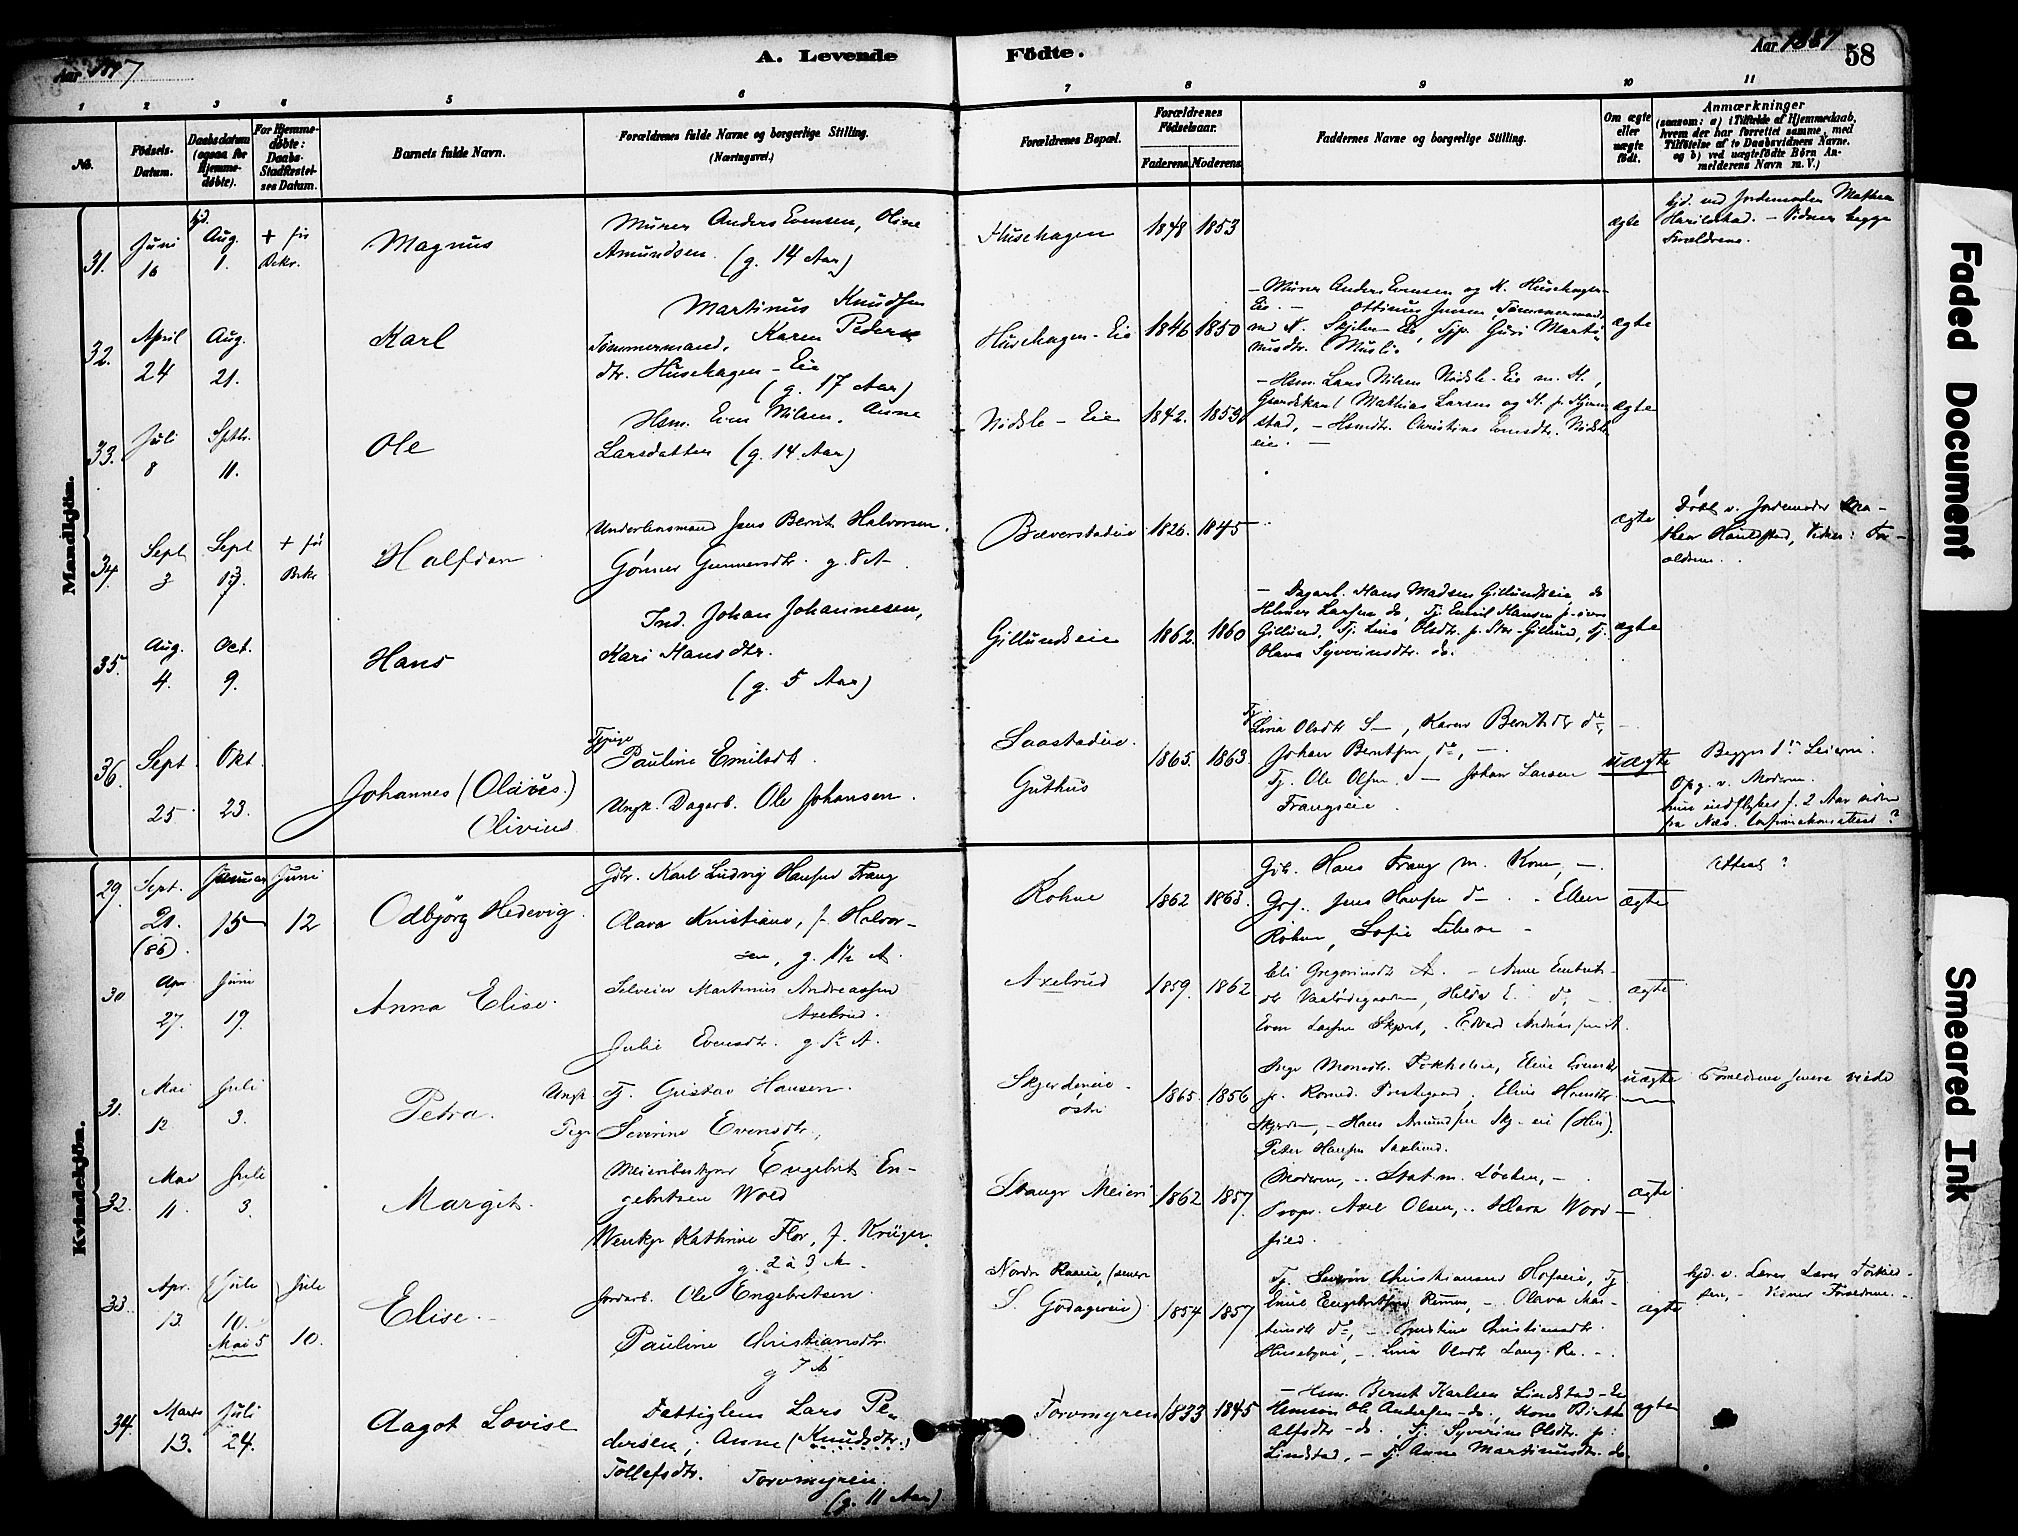 A. Levende Födte.
Aar 1887
Aar 1887
58
1 2 3 4 5 6 7 8 9 10 11
No.
Födsels-Datum.
Daabsdatum (ogsaa for Hjemme-döbte).
For Hjemme-döbte: Daabs-Stadfæstelses Datum.
Barnets fulde Navn.
Forældrenes fulde Navne og borgerlige Stilling. (Næringsvei.)
Forældrenes Bopæl.
Forældrenes Födselsaar.
Faderens Moderens
Faddernes Navne og borgerlige Stilling.
Om ægte eller uægte födt.
Anmærkninger
(saasom: a) i Tilfælde af Hjemmedaab, hvem der har forrettet samme, med Tilföielse af to Daabsvidners Navne. og b) ved uægtefödte Børn Anmelderens Navn m. V.)
Mandkjön.
31.
Juni 16
hjd. Aug. 1.
+ før Bekr.
Magnus
Murer Anders Evensen, Oline
Amundsen. (g. 14 Aar)
Husehagen
1848 1853
ægte
hjd. ved Jordemoder Mathea
- Vidner begge
Forældrene.
32.
April 24
Aug. 21.
Karl
Martinus Knudsen
Tömmermand, Karen Peders
dtr. Husehagen - Eie
(g. 17 Aar)
Husehagen - Eie
1846 1850
- Murer Anders Evensen og K. Husehagen-
Eie. - Ottinus Jensen, Tömmermand
med K. Skjelm - Eie, Tjp. Guri Marti-
nusdtr. Musli.
ægte
33.
Juli 8
Septb. 11.
Ole
Hsm. Even Nilsen, Anne
Larsdatter (g. 14 Aar)
Nidsle - Eie
1842. 1859
- Hsm. Lars Nilsen Nidsle - Eie m. H.,
Mathias Larsen og H. p. Hjelm
stad, - Hsmdtr. Christine Evensdtr. Nidsle
eie. -
ægte
34.
Sept 3
Sept 13.
+ før Bekr
Halfdan
Underlensmand Jens Bernt Halvorsen.
Gönner Gunnersdtr. g. 8 A
Bæverstadeie
1826. 1845
ægte
Döbt v. Jordemoder Ma-
thea Vidner: For-
ældrene.
35.
Aug. 4.
Oct. 9.
Hans
Ind. Johan Johannesen,
Kari Hansdtr.
(g. 5 Aar)
Gillundseie
1862. 1860
- Dagarb. Hans Madsen Gillundseie, do
Helmer Larsen do, Tj. Emil Hansen p. övre
Gillund, Tj. Lina Olsdtr. p. Stor-Gillund, Tj.
Olava Syverinsdtr. do.
ægte
36.
Sept. 25
Okt. 23.
Johannes (Olaves.)
Olivius
Tjpige
Pauline Emilsdtr.
Ungk. Dagarb. Ole Johansen.
Saastadeie.
Guthus
1865. 1863.
Tj. Lina Olsdtr S-, Karen Berntsdtr do,
Johan Berntsen do, -
Tj. Ole Olsen S- Johan Larsen
Frangseie.
uægte
Begges 1ste Leierm.
Opg. v. Moderen.
hun indflyttet f. 2 Aar siden
fra Næs.
Attest?
Kvindekjön.
29.
Sept. 21. (86)
Januar 15
Juni 12
Odbjörg Hedevig.
Gbr. Karl Ludvig Hansen Frang
Olava Kristiane, f. Halvor-
sen, g. 1½ A.
Rohne
1862 1863.
Gbr. Hans Frang m. Kone, -
Jens Hansen do. Ellen
Rohne, Sofie
ægte
30
Apr 27.
Juni 19.
Anna Elise.
Selveier Martinius Andreassen
Axelrud.
Julie Evensdtr. g. ½ A.
Axelrud
1859. 1862
Eli Gregoriusdtr A. - Anne Embrets-
dtr Helda E. do,
Even Larsen Skjæret, - Edvard Andreassen A.
ægte
31.
Mai 12
Juli 3.
Petra.
Ungk. Tj. Gustav Hansen.
Pige Severine Evensdtr.
Skjerdeneie.
östre
1865. 1856
Inge Monsdtr.
p. Romed. Prestegaard,
- Hans Amundsen Skj-eie
Peter Hansen
uægte
Forældrene senere viede
32.
Mai 11.
Juli 3.
Margit.
Meieribestyrer Engebret En-
gebretsen Wold
Wenke Kathrine Flor, f. Krüger.
g. 2 à 3 A.
Stange Meieri
1862 1857.
Moderen, - Stat.m. Löchen, -
Propr. Axel Olsen, - Klara Wood-
ægte
33.
Apr. 13.
Juli 10.
Mai 5
Juli 10.
Elise.
Jordarb. Ole Engebretsen.
Pauline Christiansdtr.
g 7 A
Nordre (senere
S. Godagereie)
1854 1857
Tj. Severin Christiansen Hofseie, Tj
Emil Engebretsen - Olava Mar-
tinsdtr do, - Christiansdtr
Husebyeie, - Lina Olsdtr
ægte
hjd. v. Lærer
sen, - Vidner Forældrene. -
34.
Marts 13.
Juli 24.
Aagot Lovise
Fattiglem Lars Pe-
dersen, Anne (Knudsdtr.)
Tollefsdtr. Torvmyren.
(g. 11 Aar)
Torvmyren
1833 1845
- Hsm. Bernt Karlsen Lindstad-Eie
Hsmsön Ole Andersen - do., Kone Birthe
Alfsdtr - do., Tj. Syverine Olsdtr. p.
Lindstad, - Tj. Anne Martinusdtr. do.
ægte
Faded Document
Smeared Ink